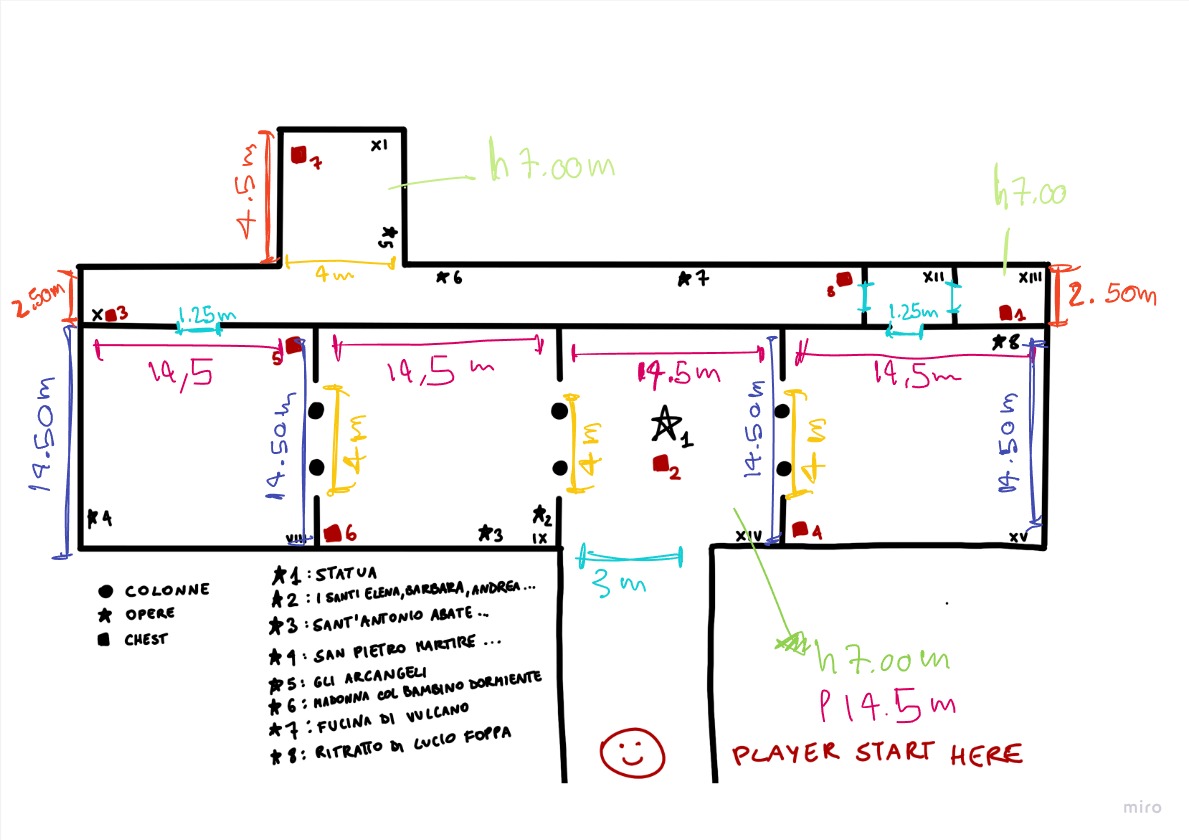 XI
7
h 7.00m
4.5m
5
h7.00
4m
6
7
8
XII
XIII
2.50m
X
3
1.25m
1.25m
1
2.50m
8
5
14,5
14,5 m
14.5m
14,5m
14.50m
14.50m
4m
4m
1
2
14.50m
4m
14.50m
4
VIII
6
3
2
IX
XIV
4
XV
3m
COLONNE
OPERE
CHEST
1: STATUA
2: I SANTI ELENA, BARBARA, ANDREA...
3: SANT'ANTONIO ABATE...
4: SAN PIETRO MARTIRE ...
5: GLI ARCANGELI
6: MADONNA COL BAMBINO DORMIENTE
7: FUCINA DI VULCANO
8: RITRATTO DI LUCIO FOPPA
h 7.00m
P 14.5m
PLAYER START HERE
miro